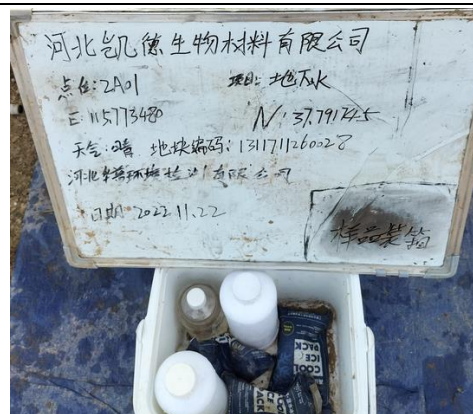 河北凯德生物材料有限公司
点位:2A01 项目:地下水
E:115.773480 N:37.791245
天气:晴 地块编码:1311711260028
河北 环境检测有限公司
日期 2022.11.22
样品装箱
COOL
ICE
PACK